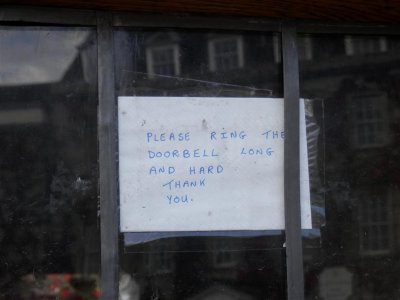 PLEASE RING THE
DOORBELL LONG
AND HARD
THANK
YOU.